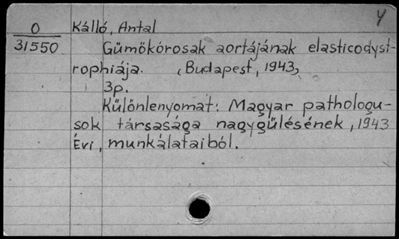 Y
O Kálló, Antal
31550 Gümőkórosak aortájának elasticodyst-
rophiája. (Budapest, 1943,
3p.
Különlenyomat: Magyar pathologu-
sok társasága nagygűlésének, 1943
Évi, munkálataiból.